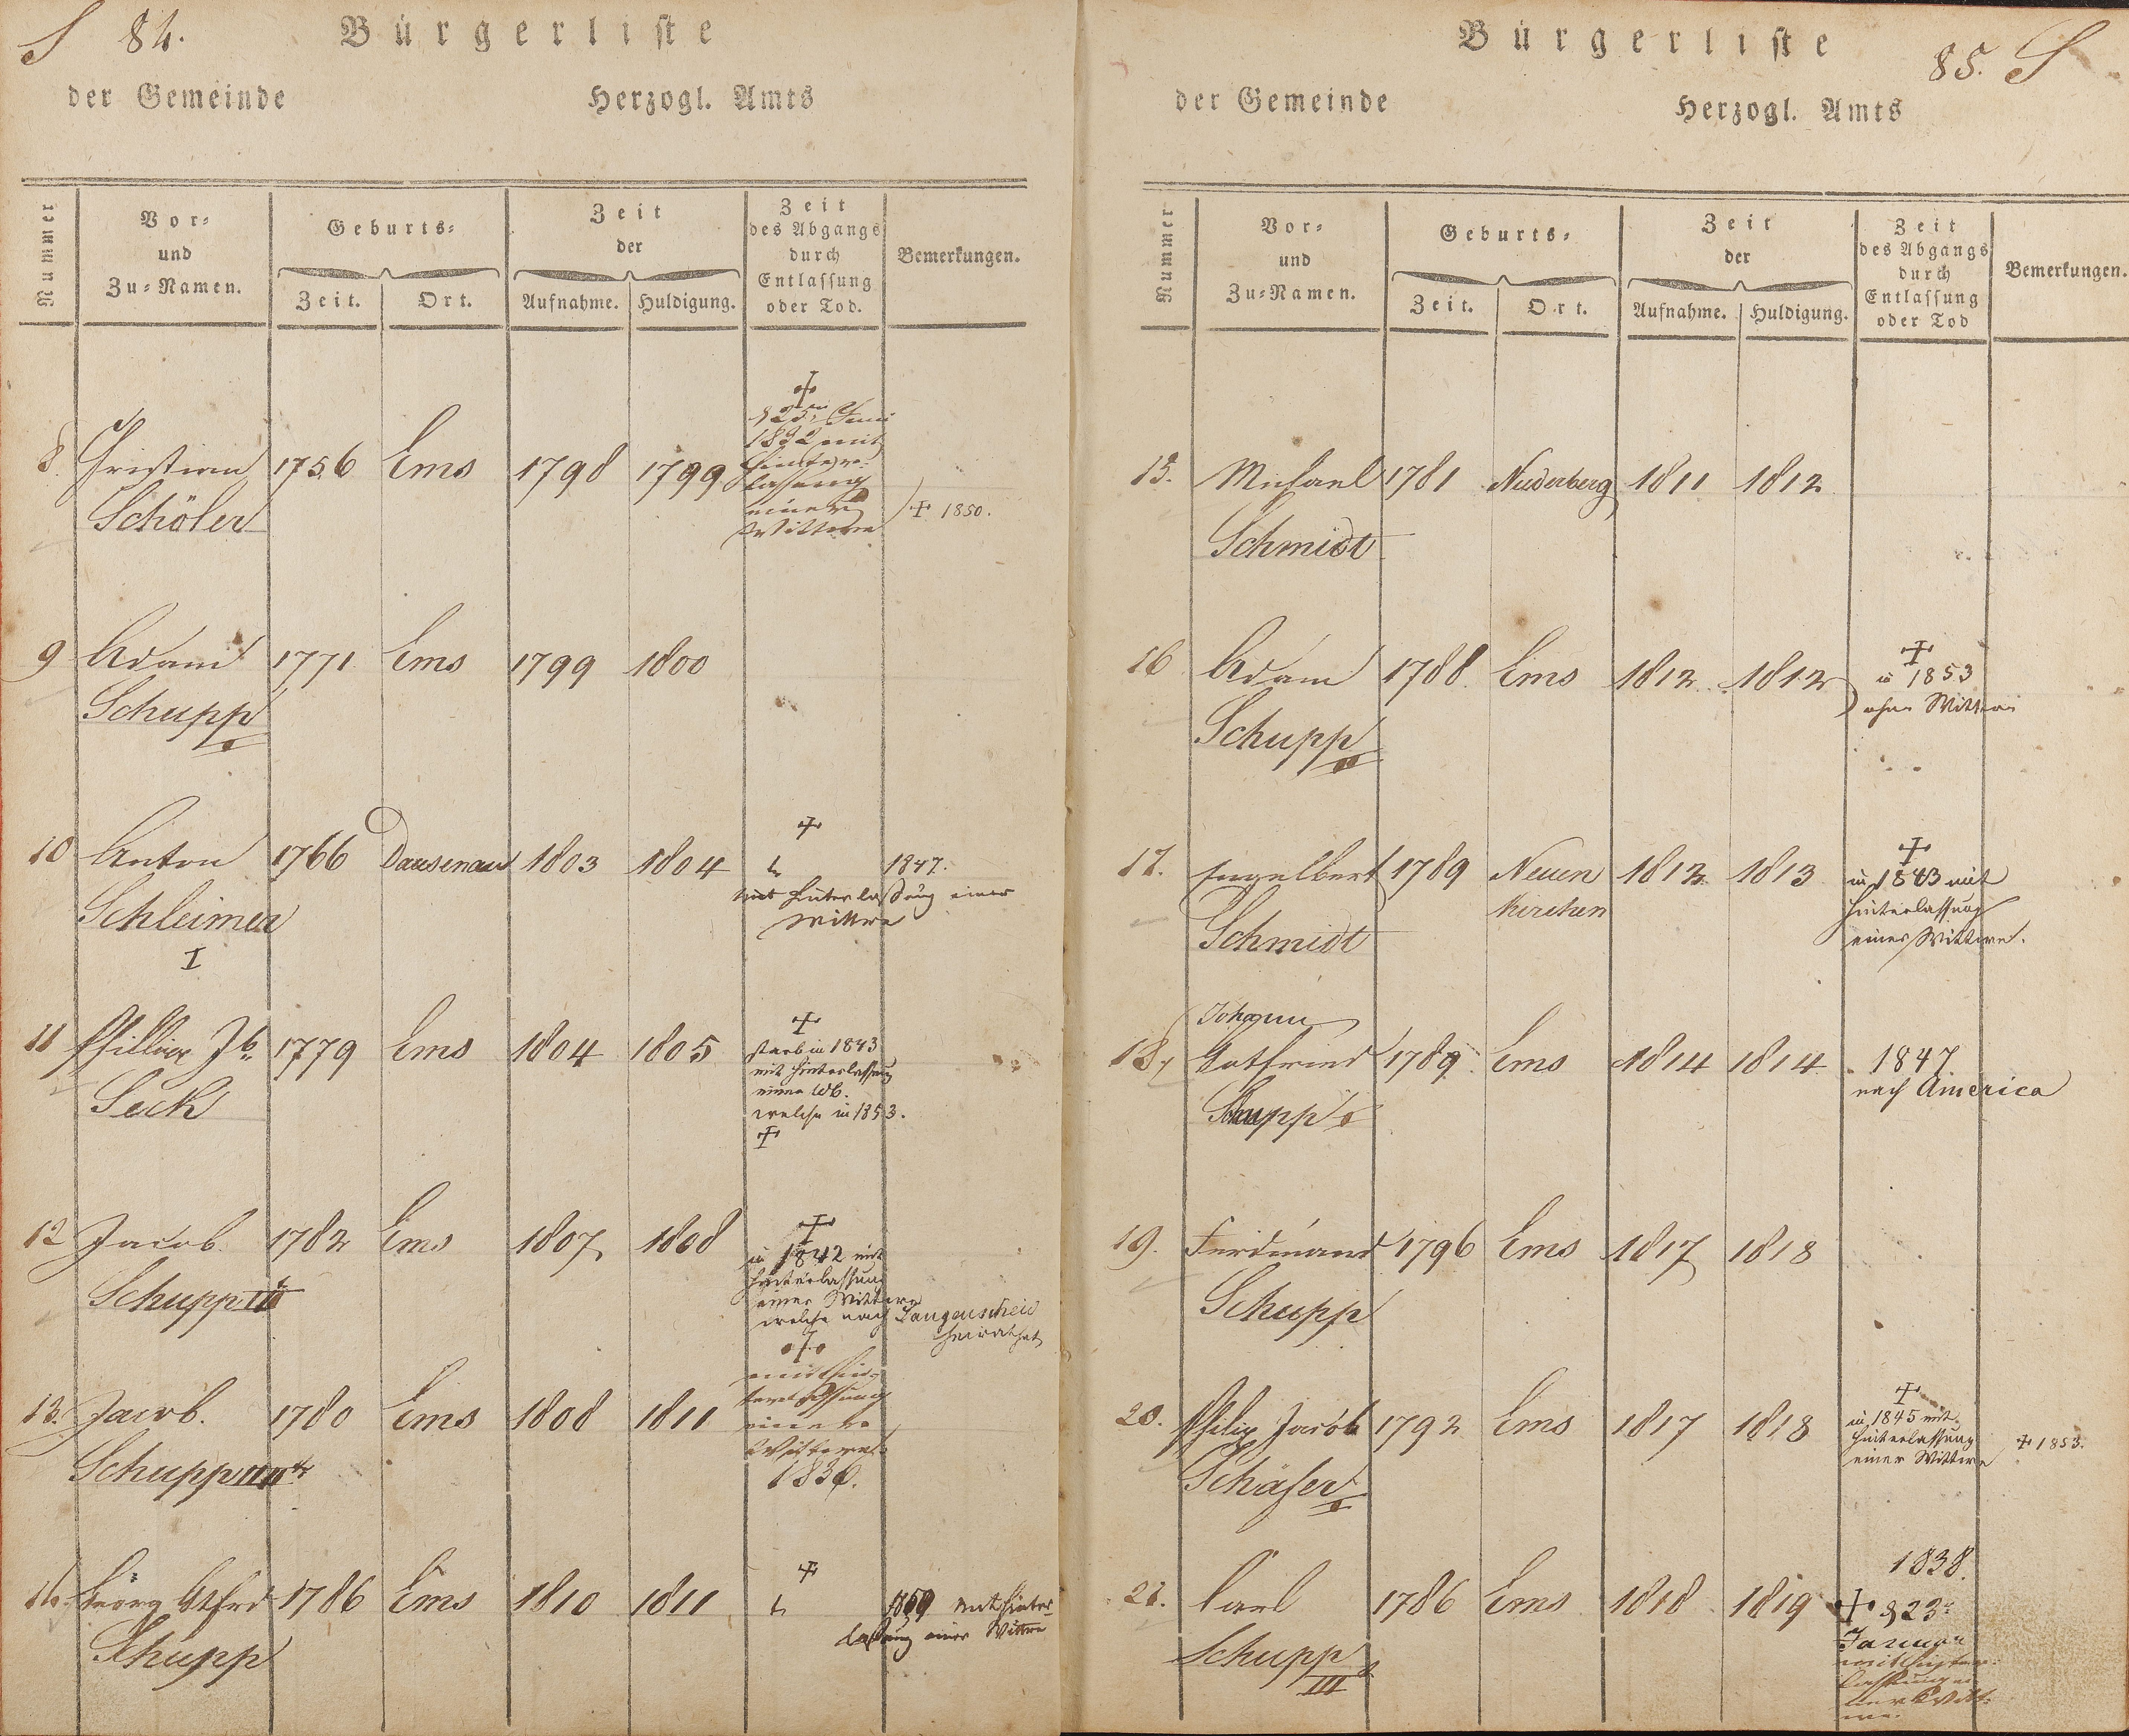 S 84.
Bürgerliste
der Gemeinde Herzogl. Amts
Nummer
Vor-
und
Zu-Namen.
Geburts-
Zeit. Ort.
Zeit
der
Aufnahme. Huldigung.
Zeit
des Abgangs
durch
Entlassung
oder Tod.
Bemerkungen.
8. Christian 1756 Ems 1798 1799
Schöler
1832 mit
Hinter-
lassung
einer
Wittwe
+ 1850.
9 Adam 1771 Ems 1799 1800
Schupp
I
10 Anton 1766 Dausenau 1803 1804
Schleimer
I
+
1847.
mit Hinterlassung einer
Wittwe
11 Phillipp Jb 1779 Ems 1804 1805
Seck
+
starb in 1843
mit Hinterlassung
einer Wb.
welche in 1853.
+
12 Jacob 1782 Ems 1807 1808
Schupp III
+
in 1842 mit
Hinterlassung
einer Wittwe
welche nach Langenscheid
heirathet
13. Jacob. 1780 Ems 1808 1811
Schupp
mit Hin-
terlassung
einer
Wittwe
1836.
14. Georg 1786 Ems 1810 1811
Schupp
+
1859 mit Hinter-
lassung einer Wittwe
85. S
Bürgerliste
der Gemeinde Herzogl. Amts
Nummer
Vor-
und
Zu-Namen.
Geburts-
Zeit. Ort.
Zeit
der
Aufnahme. Huldigung.
Zeit
des Abgangs
durch
Entlassung
oder Tod
Bemerkungen.
15. Michael 1781 Niederberg 1811 1812
Schmidt
16 Adam 1788 Ems 1812 1812
Schupp
II
+
in 1853
ohne Wittwe
17. Engelbert 1789 Neuen 1812 1813
kirchen
Schmidt
+
in 1843 mit
Hinterlassung
einer Wittwe.
Johann
18. Gotfried 1789 Ems 1814 1814
Schupp
1847
nach America
19. Ferdinand 1796 Ems 1817 1818
Schupp
20. Philip Jacob 1792 Ems 1817 1818
Schäfer
I
+
in 1845 mit
Hinterlassung
einer Wittwe
+ 1853.
21. Carl 1786 Ems 1818 1819
Schupp
III
1838.
+ d 23t
Januar
mit Hinter-
lassung ei-
ner Witt-
we.